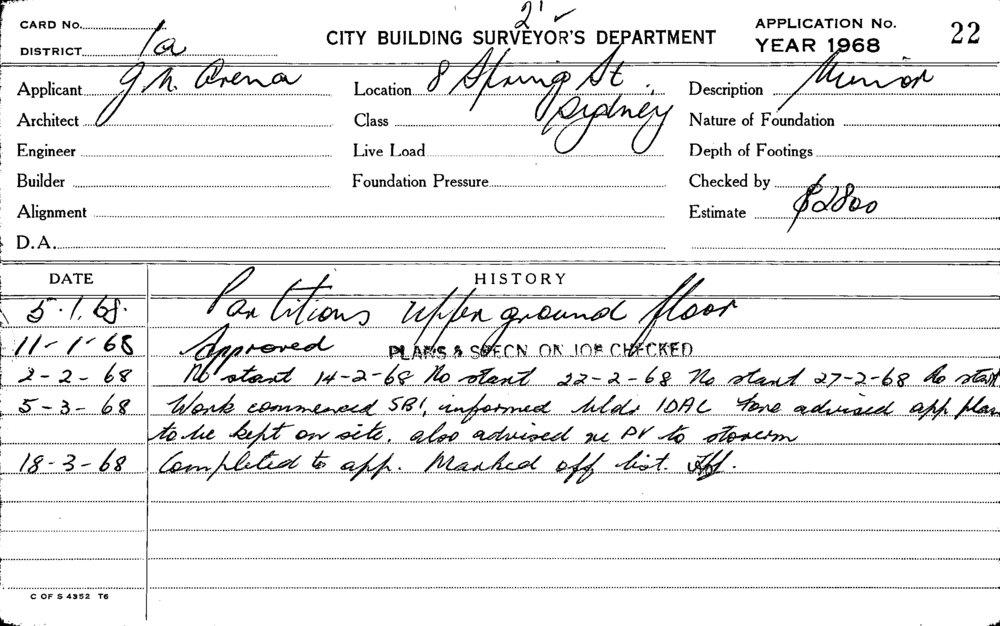 2' ✓
CARD No. APPLICATION No.
DISTRICT 1a CITY BUILDING SURVEYOR'S DEPARTMENT YEAR 1968 22
Applicant J. N. Arena Location 8 Spring St. Description Minor
Architect Class Sydney Nature of Foundation
Engineer Live Load Depth of Footings
Builder Foundation Pressure Checked by
Alignment Estimate $2800
D.A.
DATE HISTORY
5.1.68. Partitions upper ground floor
11-1-68 Approved PLANS & SPECN ON JOB CHECKED
2-2-68 No start 14-2-68 No start 22-2-68 No start 27-2-68 No start
5-3-68 Work commenced SB1, informed advised app plan
to be kept on site. also advised re PV to
18-3-68 Completed to app. Marked off list.
C OF S 4352 T6